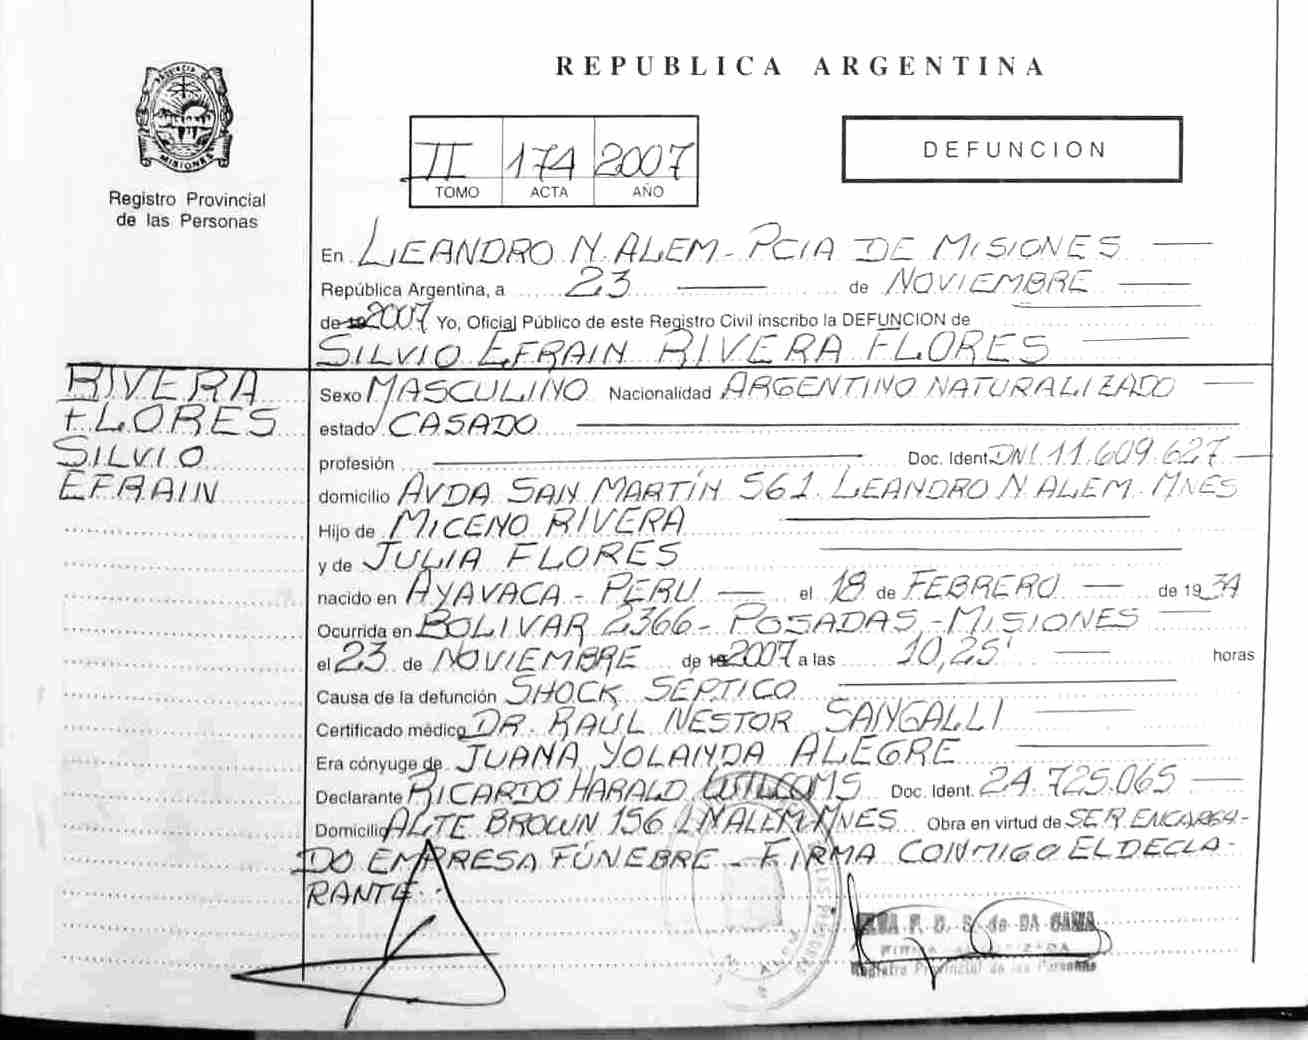 REPUBLICA ARGENTINA
PROVINCIA DE
MISIONES
Registro Provincial
de las Personas
II 174 2007
TOMO ACTA AÑO
DEFUNCION
En LEANDRO N. ALEM - PCIA DE MISIONES
República Argentina, a 23 de NOVIEMBRE
de 19 2007 Yo, Oficial Público de este Registro Civil inscribo la DEFUNCION de
SILVIO EFRAIN RIVERA FLORES
RIVERA
FLORES
SILVIO
EFRAIN
Sexo MASCULINO Nacionalidad ARGENTINO NATURALIZADO
estado CASADO
profesión Doc. Ident. DNI 11.609.627
domicilio AVDA SAN MARTÍN 561 LEANDRO N. ALEM. MNES
Hijo de MICENO RIVERA
y de JULIA FLORES
nacido en AYAVACA - PERU el 18 de FEBRERO de 1934
Ocurrida en BOLIVAR 2366 - POSADAS - MISIONES
el 23 de NOVIEMBRE de 19 2007 a las 10,25' horas
Causa de la defunción SHOCK SEPTICO
Certificado médico DR. RAÚL NESTOR SANGALLI
Era cónyuge de JUANA YOLANDA ALEGRE
Declarante RICARDO HARALD Doc. Ident. 24.725.065
Domicilio ALTE BROWN 156 L N ALEM MNES Obra en virtud de SER ENCARGA-
DO EMPRESA FÚNEBRE - FIRMA CONMIGO EL DECLA-
RANTE.
F. D. S. de DA GAMA
Registro Provincial de las Personas